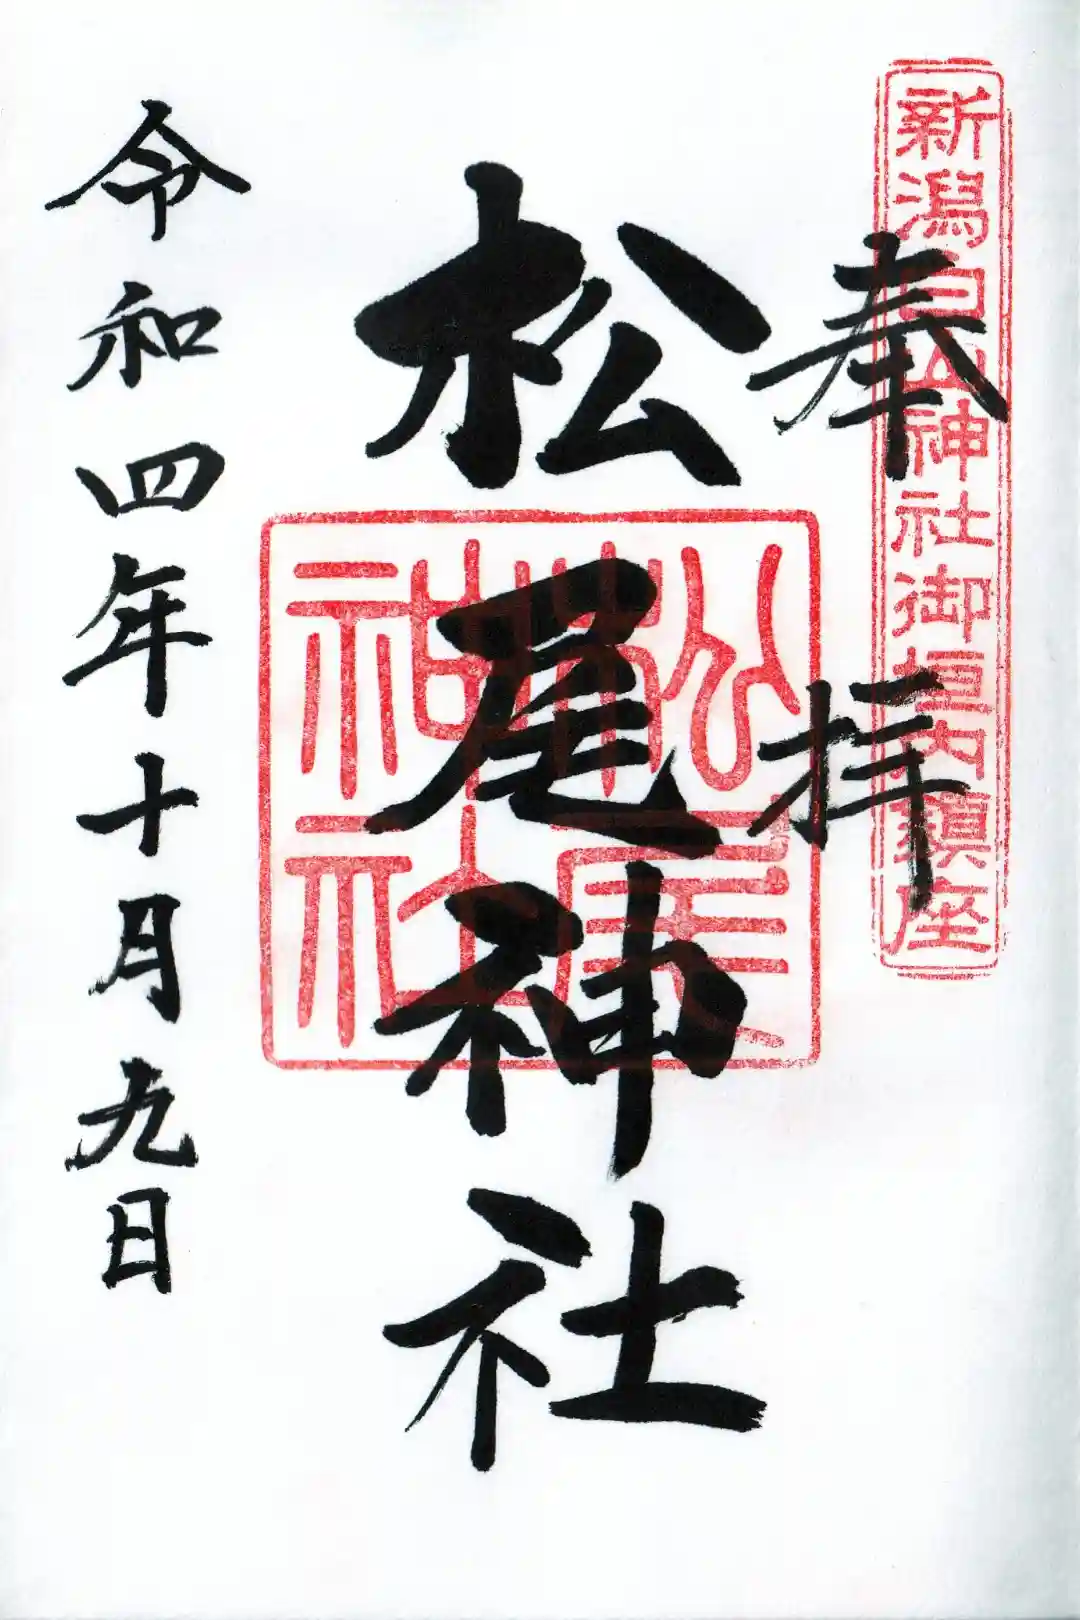 新潟白山神社御垣内鎮座
奉拝
松尾神社
松尾神社
令和四年十月九日